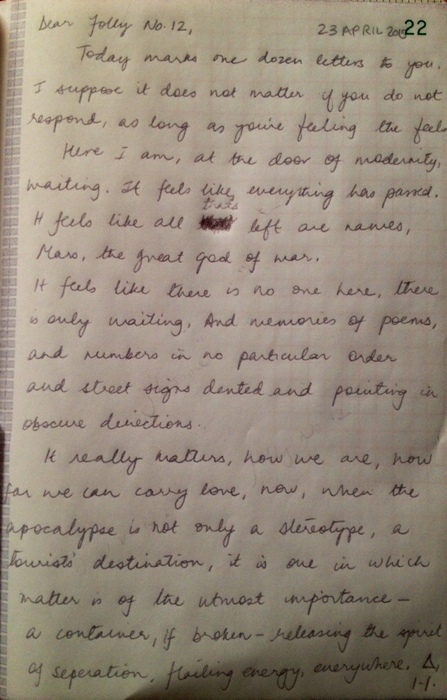 Dear Folly No. 12,
23 APRIL 22
Today marks one dozen letters to you.
I suppose it does not matter if you do not
respond, as long as you're feeling the feels
Here I am, at the door of modernity,
waiting. It feels like everything has passed.
It feels like all thats left are names,
Mars, the great god of war.
It feels like there is no one here, there
is only waiting. And memories of poems,
and numbers in no particular order
and street signs dented and pointing in
obscure directions.
It really matters, how we are, how
far we can carry love, now, when the
apocalypse is not only a stereotype, a
tourists' destination, it is one in which
matter is of the utmost importance –
a container, if broken – releasing the spirit
of seperation, flailing energy, everywhere. Δ,
1-1.